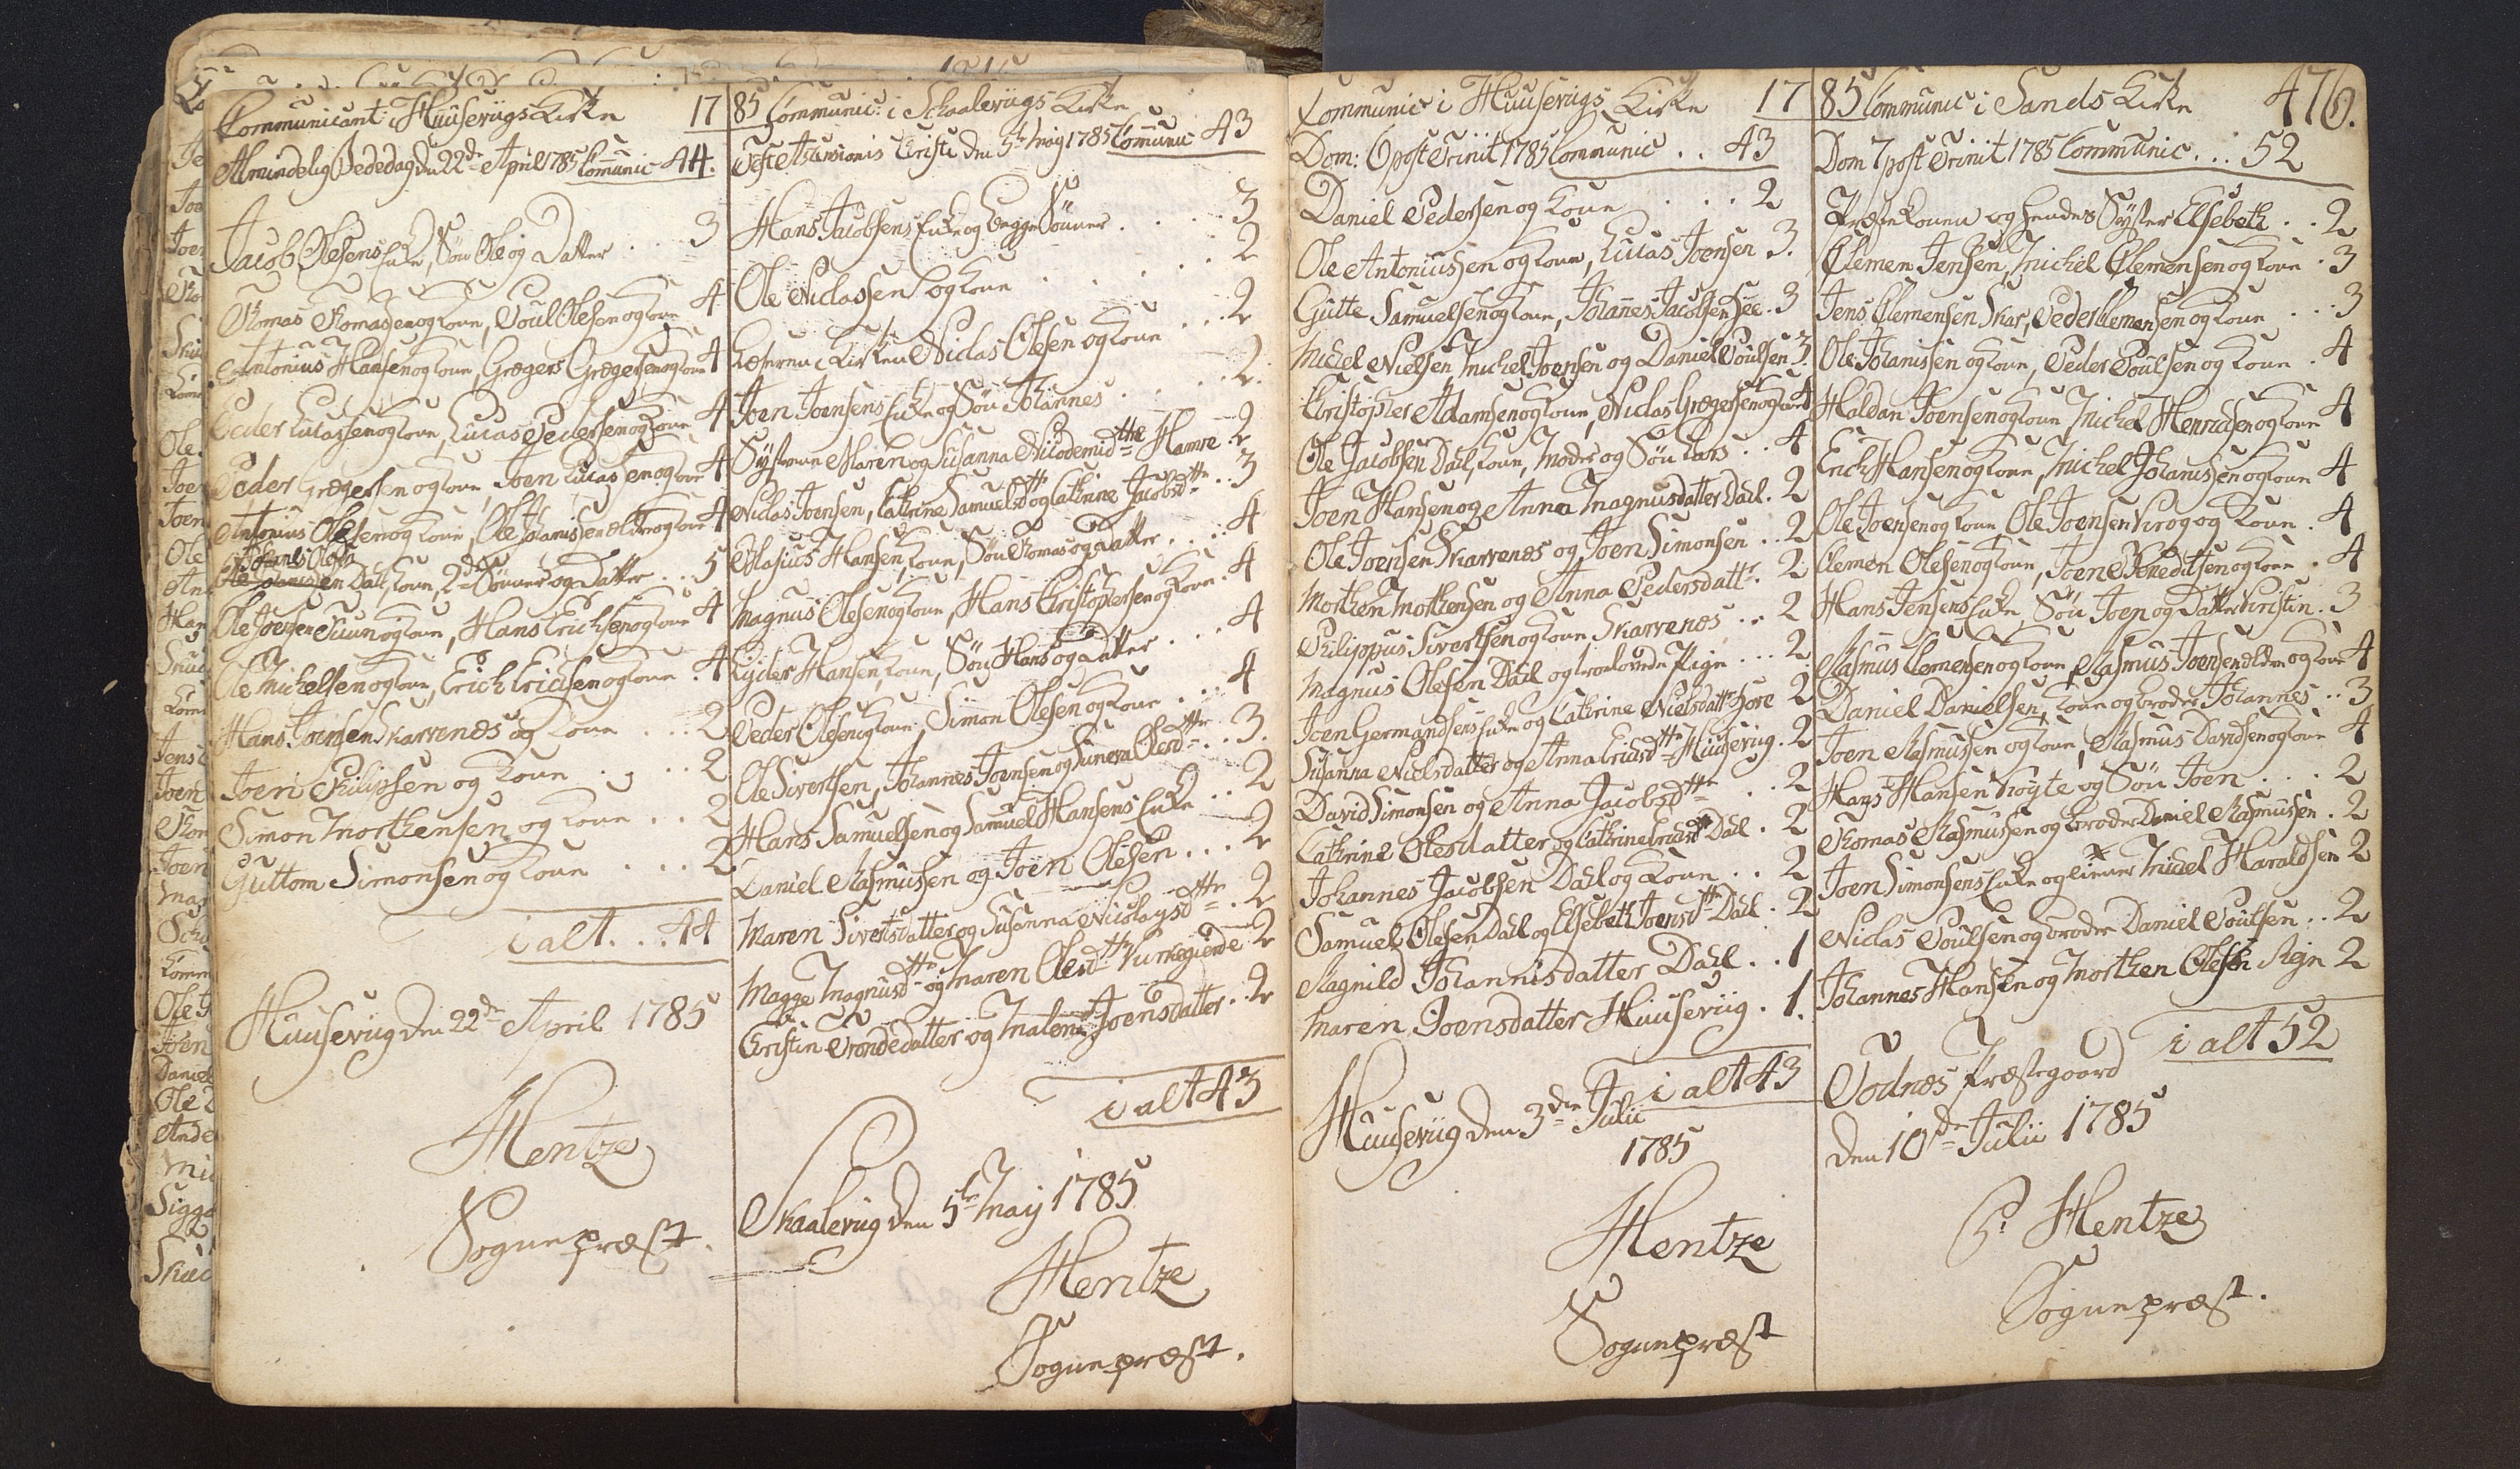 Communicant: i Huuseviigs Kirke 17
Almindelig Bededag den 22de April 1785 Communic 44.
Jacob Olesens Enke, Søn Ole og Datter . . . 3
Thomas Thomasen og Kone, Poul Olesen og Kone 4
Antonius Hansen og Kone, Grægers Grægersen og Kone 4
Peder Lucassen og Kone, Lucas Pedersen og Kone 4
Peder Grægersen og Kone, Joen Lucassen og Kone 4
Antonius Olesen og Kone, Ole Johanissen ældre og Kone 4
Johanis Olesen
Dahl, Kone, 2de Sønner og Datter . . . 5
Ole Joensen Tuun og Kone, Hans Erichsen og Kone 4
Ole Michelsen og Kone, Erich Ericksen og Kone . 4
Hans Joensen Skarvenæs og Kone . . . 2
Joen Philipsen og Kone . . . 2
Simon Morthensen og Kone . . 2
Guttom Simonsen og Kone . . . 2
i alt . . . 44
Huuseviig den 22de April 1785
Hentze
Sognepræst.
85 Communic: i Schaaleviigs Kirke
Festo Ascensionis Christi den 5te Maij 1785 Communic 43
Hans Jacobsens Enke og begge Sønner . . . 3
Ole Niclassen og Kone . . . . . 2
Kirken Niclas Olesen og Kone . . . 2
Joen Joensens Enke og Søn Johannes . . . . 2.
Systerne Maren og Susanna Nicodemidttre Hamre . 2
Niclas Joensen, Cathrine Samuelsdttr og Cathrine Jacobsdttr . . 3
Clasius Hansen, Kone, Søn Thomas og Datter . . . . 4
Magnus Olesen og Kone, Hans Christophersen og Kone . 4
Hansen, Kone, Søn Hans og Datter . . . 4
Peder Olesen og Kone, Simon Olesen og Kone . . . 4
Ole Sivertsen, Johannes Joensen og Sunneva Olesdttr . . 3.
Hans Samuelsen og Samuel Hansens Enke . . 2
Daniel Rasmussen og Joen Olesen . . . 2
Maren Sivertsdatter og Susanna Nicolaysdttr . 2
Magge Magnusdttr og Maren Olesdttr 2
Christin Trondedatter og Malene Joensdatter . 2
i alt 43
Skaaleviig den 5te Maij 1785
Hentze
Sognepræst.
Communic i Huuseviigs Kirke 17
Dom: 6 post Trinit 1785 Communic . . 43
Daniel Pedersen og Kone . . . 2
Ole Antoniussen og Kone, Lucas Joensen 3.
Gutte Samuelsen og Kone, Johannes Jacobsen . 3
Michel Nielsen, Michel Joensen og Daniel Poulsen . 3.
Christopher Adamsen og Kone, Niclas Grægersen og Kone 4
Ole Jacobsen Dahl, Kone, Moder og Søn Lars . . 4
Joen Hansen og Anna Magnusdatter Dahl . 2
Ole Joensen Skarvenæs og Joen Simonsen . . 2
Morthen Morthensen og Anna Pedersdattr . 2
Philippus Sivertsen og Kone Skarvenæs . . 2
Magnus Olesen Dahl og trolovede Pige . . . 2
Joen Germandsens Enke og Cathrine Nielsdattr 2
Susanna Nielsdatter og Anna Erichsdttr Huuseviig . 2
David Simonsen og Anna Jacobsdttr . . 2
Cathrine Olesdatter og Cathrine Dahl . 2
Johannes Jacobsen Dahl og Kone . . 2
Samuel Olesen Dahl og Elsebeth Joensdttr Dahl . 2
Ragnild Johannisdatter Dahl . . 1
Maren Joensdatter Huusevig . 1.
i alt 43
Huuseviig den 3die Julii
1785
Hentze
Sognepræst
85 Communic i Sands Kirke 476.
Dom 7 post Trinit 1785 Communic . . . 52
Præstekonen og hendes Syster Elsebeth . . 2
Clemen Jensen, Michel Clemensen og Kone . 3
Jens Clemensen Skar, Peder Clemensen og Kone . . 3
Ole Johanissen og Kone, Peder Poulsen og Kone . 4
Haldan Joensen og Kone, Michel Henricksen og Kone 4
Erich Hansen og Kone, Michel Johanissen og Kone 4
Ole Joensen og Kone, Ole Joensen og Kone . 4
Clemen Olesen og Kone, Joen Benedictsen og Kone . 4
Hans Jensens Enke, Søn Joen og Datter Christin . 3
Rasmus Clemensen og Kone, Rasmus Joensen ældre og Kone 4
Daniel Danielsen, Kone og broder Johannes . . 3
Joen Rasmussen og Kone, Rasmus Davidsen og Kone 4
Hans Hansen og Søn Joen . . . 2
Thomas Rasmussen og broder Daniel Rasmussen . 2
Joen Simonsens Enke og Michel Haraldsen 2
Niclas Poulsen og broder Daniel Poulsen . . 2
Johannes Hansen og Morthen Olesen 2
i alt 52
Todnæs Præstegaard
den 10de Julii 1785
P. Hentze
Sognepræst.